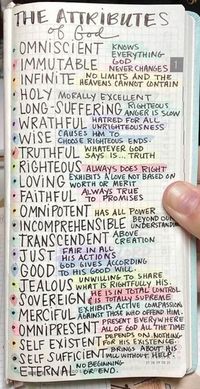 THE ATTRIBUTES
of God
OMNISCIENT KNOWS EVERYTHING
IMMUTABLE GOD NEVER CHANGES
INFINITE NO LIMITS AND THE HEAVENS CANNOT CONTAIN
HOLY MORALLY EXCELLENT
LONG-SUFFERING RIGHTEOUS ANGER IS SLOW
WRATHFUL HATRED FOR ALL UNRIGHTEOUSNESS
WISE CAUSES HIM TO CHOOSE RIGHTEOUS ENDS.
TRUTHFUL WHATEVER GOD SAYS IS... TRUTH
RIGHTEOUS ALWAYS DOES RIGHT
LOVING EXHIBITS A LOVE NOT BASED ON WORTH OR MERIT
FAITHFUL ALWAYS TRUE TO PROMISES
OMNIPOTENT HAS ALL POWER
INCOMPREHENSIBLE BEYOND OUR UNDERSTANDING
TRANSCENDENT ABOVE CREATION
JUST FAIR IN ALL HIS ACTIONS
GOOD GOD GIVES ACCORDING TO HIS GOOD WILL.
JEALOUS UNWILLING TO SHARE WHAT IS RIGHTFULLY HIS.
SOVEREIGN HE IS IN TOTAL CONTROL IS TOTALLY SUPREME
MERCIFUL EXHIBITS ACTIVE COMPASSION AGAINST THOSE WHO OFFEND HIM.
OMNIPRESENT PRESENT EVERYWHERE ALL OF GOD ALL THE TIME
SELF EXISTENT DEPENDS ON NOTHING FOR HIS EXISTENCE.
SELF SUFFICIENT BRINGS ABOUT HIS WILL WITHOUT HELP.
ETERNAL NO BEGINNING OR END.
1